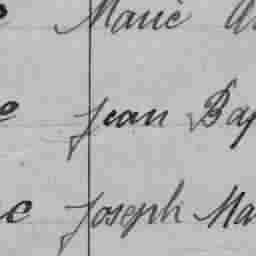 Marie
Jean Bap
Joseph Ma